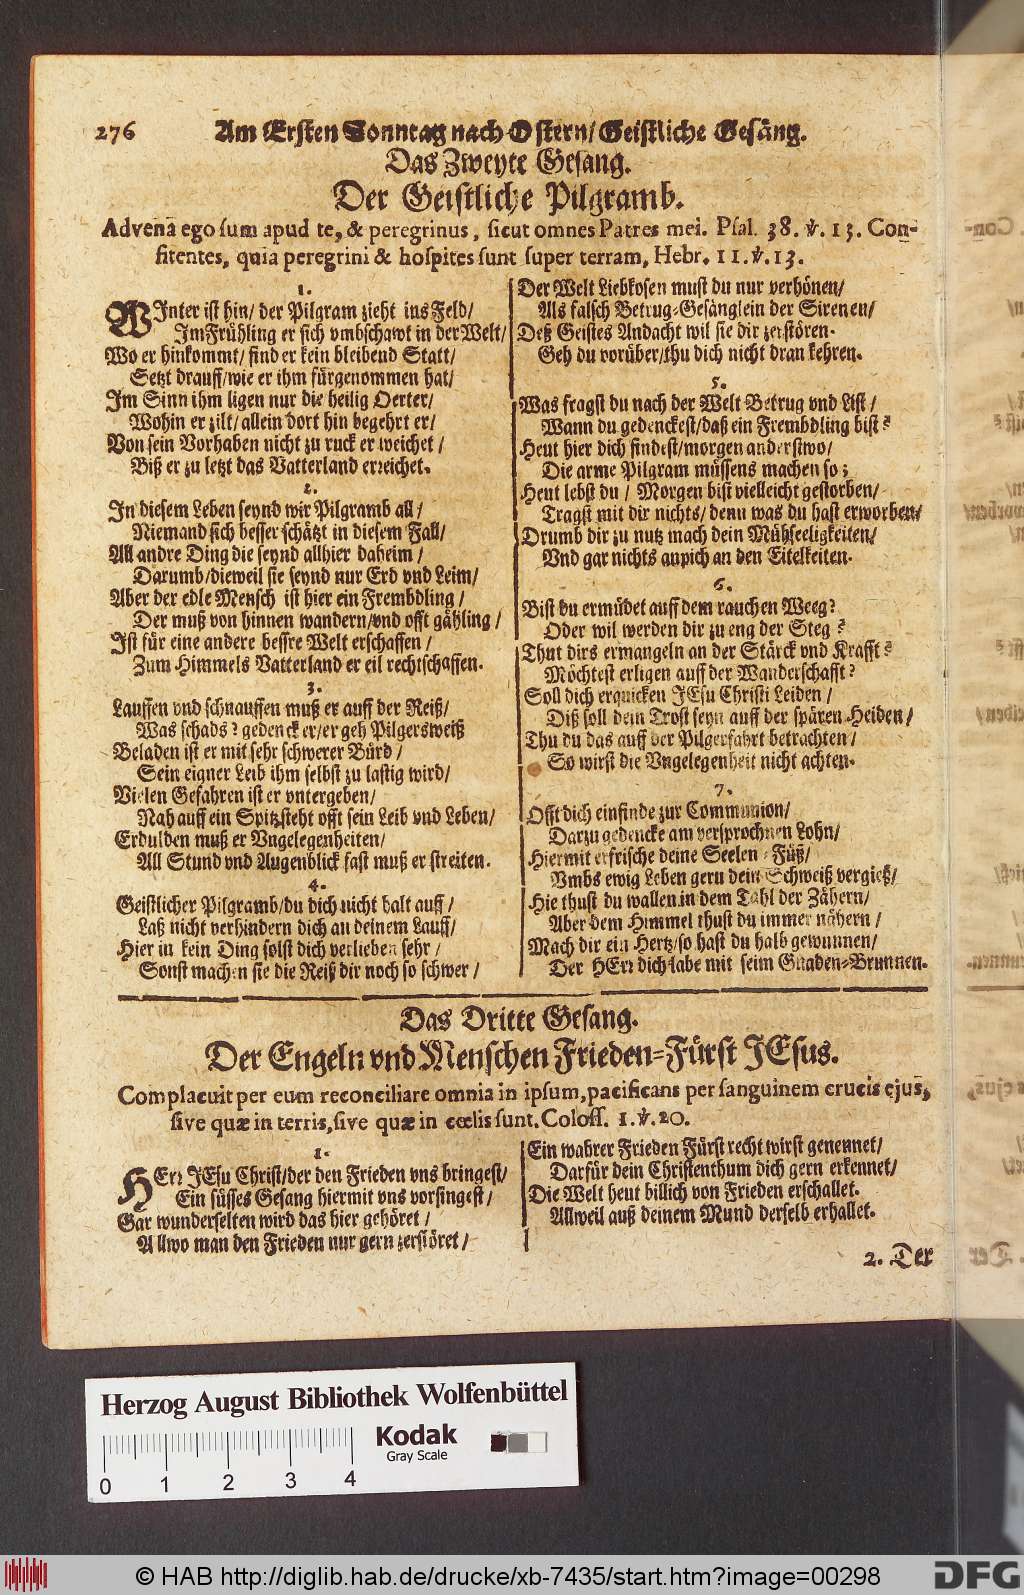 276 Am Ersten Sonntag nach Ostern/ Geistliche Gesäng.
Das Zweyte Gesang.
Der Geistliche Pilgramb.
Advena ego sum apud te, & peregrinus, sicut omnes Patres mei. Psal. 38. ℣. 13. Con-
fitentes, quia peregrini & hospites sunt super terram, Hebr. 11. ℣. 13.
1.
WInter ist hin/ der Pilgram zieht ins Feld/
Im Frühling er sich vmbschawt in der Welt/
Wo er hinkommt/ find er kein bleibend Statt/
Setzt drauff/ wie er ihm fürgenommen hat/
Im Sinn ihm ligen nur die heilig Oerter/
Wohin er zilt/ allein dort hin begehrt er/
Von sein Vorhaben nicht zu ruck er weichet/
Biß er zu letzt das Vatterland erreichet.
2.
In diesem Leben seynd wir Pilgramb all/
Niemand sich besser schätzt in diesem Fall/
All andre Ding die seynd allhier daheim/
Darumb/ dieweil sie seynd nur Erd vnd Leim/
Aber der edle Mensch ist hier ein Frembdling/
Der muß von hinnen wandern/ vnd offt gähling/
Ist für eine andere bessre Welt erschaffen/
Zum Himmels Vatterland er eil rechtschaffen.
3.
Lauffen vnd schnauffen muß er auff der Reiß/
Was schads? gedenck er/ er geh Pilgersweiß
Beladen ist er mit sehr schwerer Bürd/
Sein eigner Leib ihm selbst zu lastig wird/
Vielen Gefahren ist er vntergeben/
Nah auff ein Spitz steht offt sein Leib vnd Leben/
Erdulden muß er Vngelegenheiten/
All Stund vnd Augenblick fast muß er streiten.
4.
Geistlicher Pilgramb/ du dich nicht halt auff/
Laß nicht verhindern dich an deinem Lauff/
Hier in kein Ding solst dich verlieben sehr/
Sonst machen sie die Reiß dir noch so schwer/
Der Welt Liebkosen must du nur verhönen/
Als falsch Betrug-Gesänglein der Sirenen/
Deß Geistes Andacht wil sie dir zerstören.
Geh du vorüber/ thu dich nicht dran kehren.
5.
Was fragst du nach der Welt Betrug vnd List/
Wann du gedenckest/ daß ein Frembdling bist?
Heut hier dich findest/ morgen anderstwo/
Die arme Pilgram müssens machen so;
Heut lebst du/ Morgen bist vielleicht gestorben/
Tragst mit dir nichts/ denn was du hast erworben/
Drumb dir zu nutz mach dein Mühseeligkeiten/
Vnd gar nichts anpich an den Eitelkeiten.
6.
Bist du ermüdet auff dem rauchen Weeg?
Oder wil werden dir zu eng der Steg?
Thut dirs ermangeln an der Stärck vnd Krafft?
Möchtest erligen auff der Wanderschafft?
Soll dich erquicken JEsu Christi Leiden/
Diß soll dein Trost seyn auff der spären Heiden/
Thu du das auff der Pilgerfahrt betrachten/
So wirst die Vngelegenheit nicht achten.
7.
Offt dich einfinde zur Communion/
Darzu gedencke am versprochnen Lohn/
Hiermit erfrische deine Seelen-Füß/
Vmbs ewig Leben gern dein Schweiß vergieß/
Hie thust du wallen in dem Tahl der Zähern/
Aber dem Himmel thust du immer nähern/
Mach dir ein Hertz/ so hast du halb gewunnen/
Der HErr dich labe mit seim Gnaden-Brunnen.
Das Dritte Gesang.
Der Engeln vnd Menschen Frieden-Fürst JEsus.
Complacuit per eum reconciliare omnia in ipsum, pacificans per sanguinem crucis ejus,
sive quæ in terris, sive quæ in cœlis sunt. Coloss. 1. ℣. 20.
1.
HErr JEsu Christ/ der den Frieden vns bringest/
Ein süsses Gesang hiermit vns vorsingest/
Gar wunderselten wird das hier gehöret/
Allwo man den Frieden nur gern zerstöret/
Ein wahrer Frieden Fürst recht wirst genennet/
Darfür dein Christenthum dich gern erkennet/
Die Welt heut billich von Frieden erschallet.
Allweil auß deinem Mund derselb erhallet.
2. Der
Herzog August Bibliothek Wolfenbüttel
Kodak
Gray Scale
0 1 2 3 4
© HAB http://diglib.hab.de/drucke/xb-7435/start.htm?image=00298
DFG